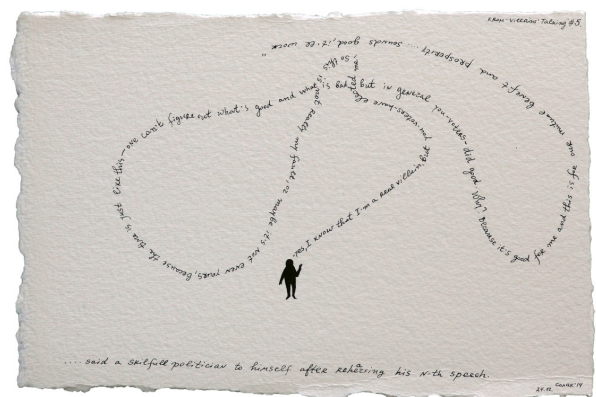 From "Villains' Talking #5.
"Yes, I know that I'm a real villain, but you-voters-have elected me, so this is not really my fault, or maybe it's not even yours, because the time is just like this – one can't figure out what's good and what is bad, but in general you-voters-did good. Why? Because it's good for me and this is for our mutual benefit and prosperity ... sounds good, it'll work"
....said a skilfull politician to himself after rehearsing his N-th speech.